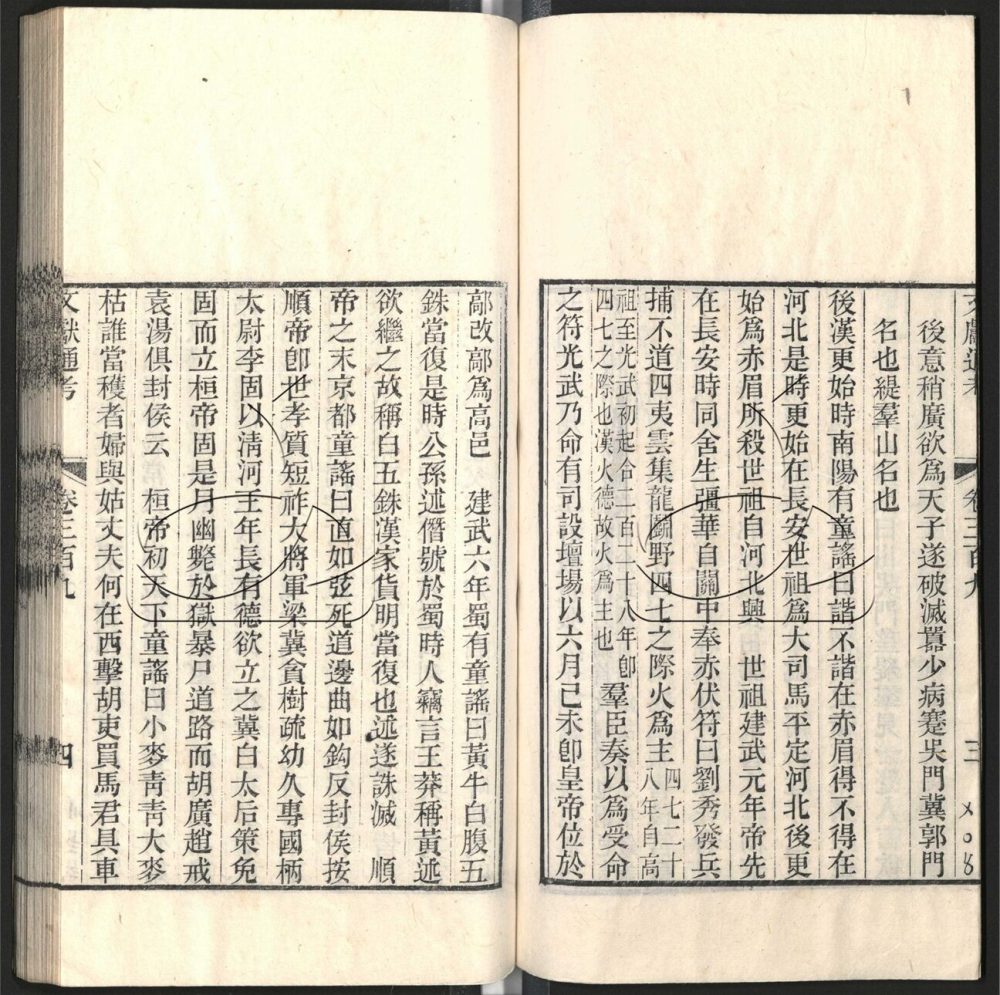 後意稍廣欲爲天子遂破滅囂少病蹇吳門冀郭門
名也緹羣山名也
後漢更始時南陽有童謠曰諧不諧在赤眉得不得在
河北是時更始在長安世祖爲大司馬平定河北後更
始爲赤眉所殺世祖自河北興　世祖建武元年帝先
在長安時同舍生彊華自關中奉赤伏符曰劉秀發兵
捕不道四夷雲集龍鬭野四七之際火爲主四七二十八年自高
祖至光武初起合二百二十八年卽四七之際也漢火德故火爲主也羣臣奏以爲受命
之符光武乃命有司設壇場以六月己未卽皇帝位於
鄗改鄗爲高邑　建武六年蜀有童謠曰黃牛白腹五
銖當復是時公孫述僭號於蜀時人竊言王莽稱黃述
欲繼之故稱白五銖漢家貨明當復也述遂誅滅　順
帝之末京都童謠曰直如弦死道邊曲如鈎反封侯按
順帝卽世孝質短祚大將軍梁冀貪樹疏幼久專國柄
太尉李固以淸河王年長有德欲立之冀白太后策免
固而立桓帝固是月幽斃於獄暴尸道路而胡廣趙戒
袁湯俱封侯云　桓帝初天下童謠曰小麥靑靑大麥
枯誰當穫者婦與姑丈夫何在西擊胡吏買馬君具車
文獻通考　卷三百九　四